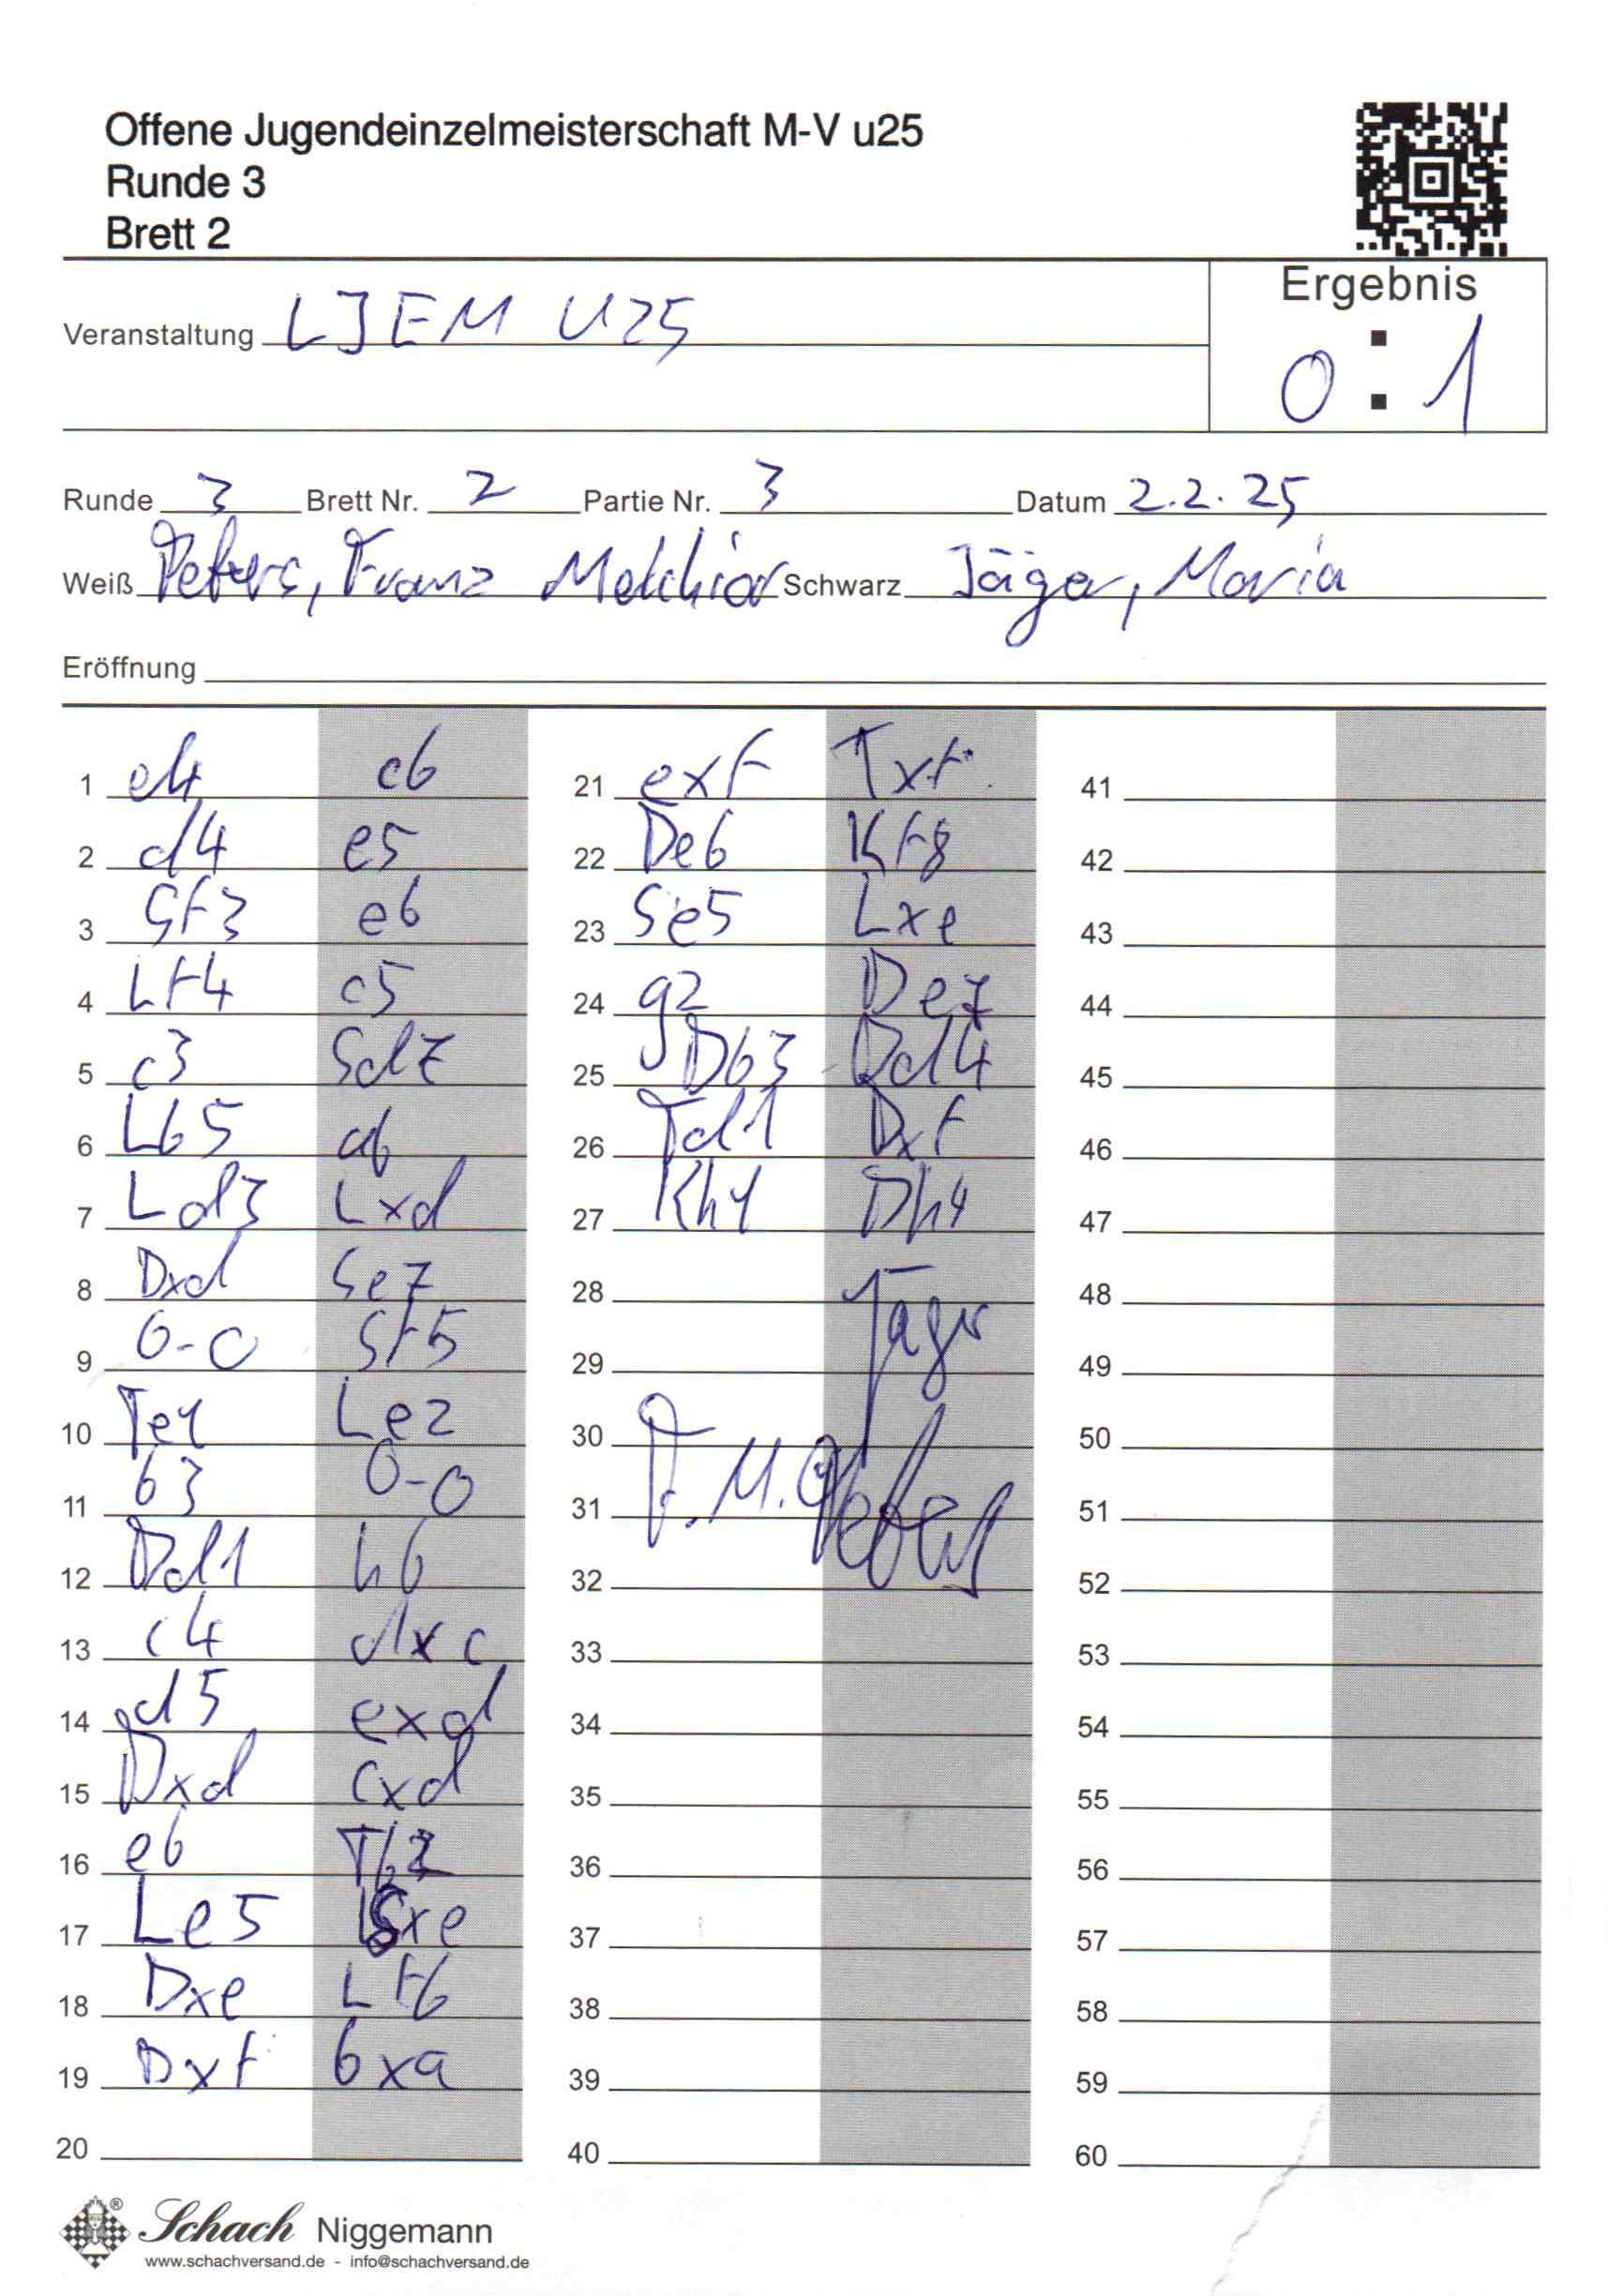 Offene Jugendeinzelmeisterschaft M-V u25
Runde 3
Brett 2
Ergebnis
Veranstaltung LJEM U25
0 : 1
Runde 3 Brett Nr. 2 Partie Nr. 3 Datum 2.2.25
Weiß Peters, Franz Melchior Schwarz Jäger, Maria
Eröffnung
1 e4 c6
2 d4 e5
3 Sf3 e6
4 Lf4 c5
5 c3 Sd7
6 Lb5 a6
7 Ld3 Lxd
8 Dxd Se7
9 0-0 Sf5
10 Te1 Le7
11 b3 0-0
12 Dd1 h6
13 c4 dxc
14 d5 exd
15 Dxd cxd
16 e6
17 Le5 Sxe
18 Dxe Lf6
19 Dxf bxa
20
21 exf Txf
22 De6 Kf8
23 Se5 Lxe
24 g2 De7
25 Db3 Dd4
26 Td1 Dxf
27 Kh1 Dh4
28 Jäger
29
30
31 F. M. Peters
32
33
34
35
36
37
38
39
40
41
42
43
44
45
46
47
48
49
50
51
52
53
54
55
56
57
58
59
60
Schach Niggemann
www.schachversand.de - info@schachversand.de